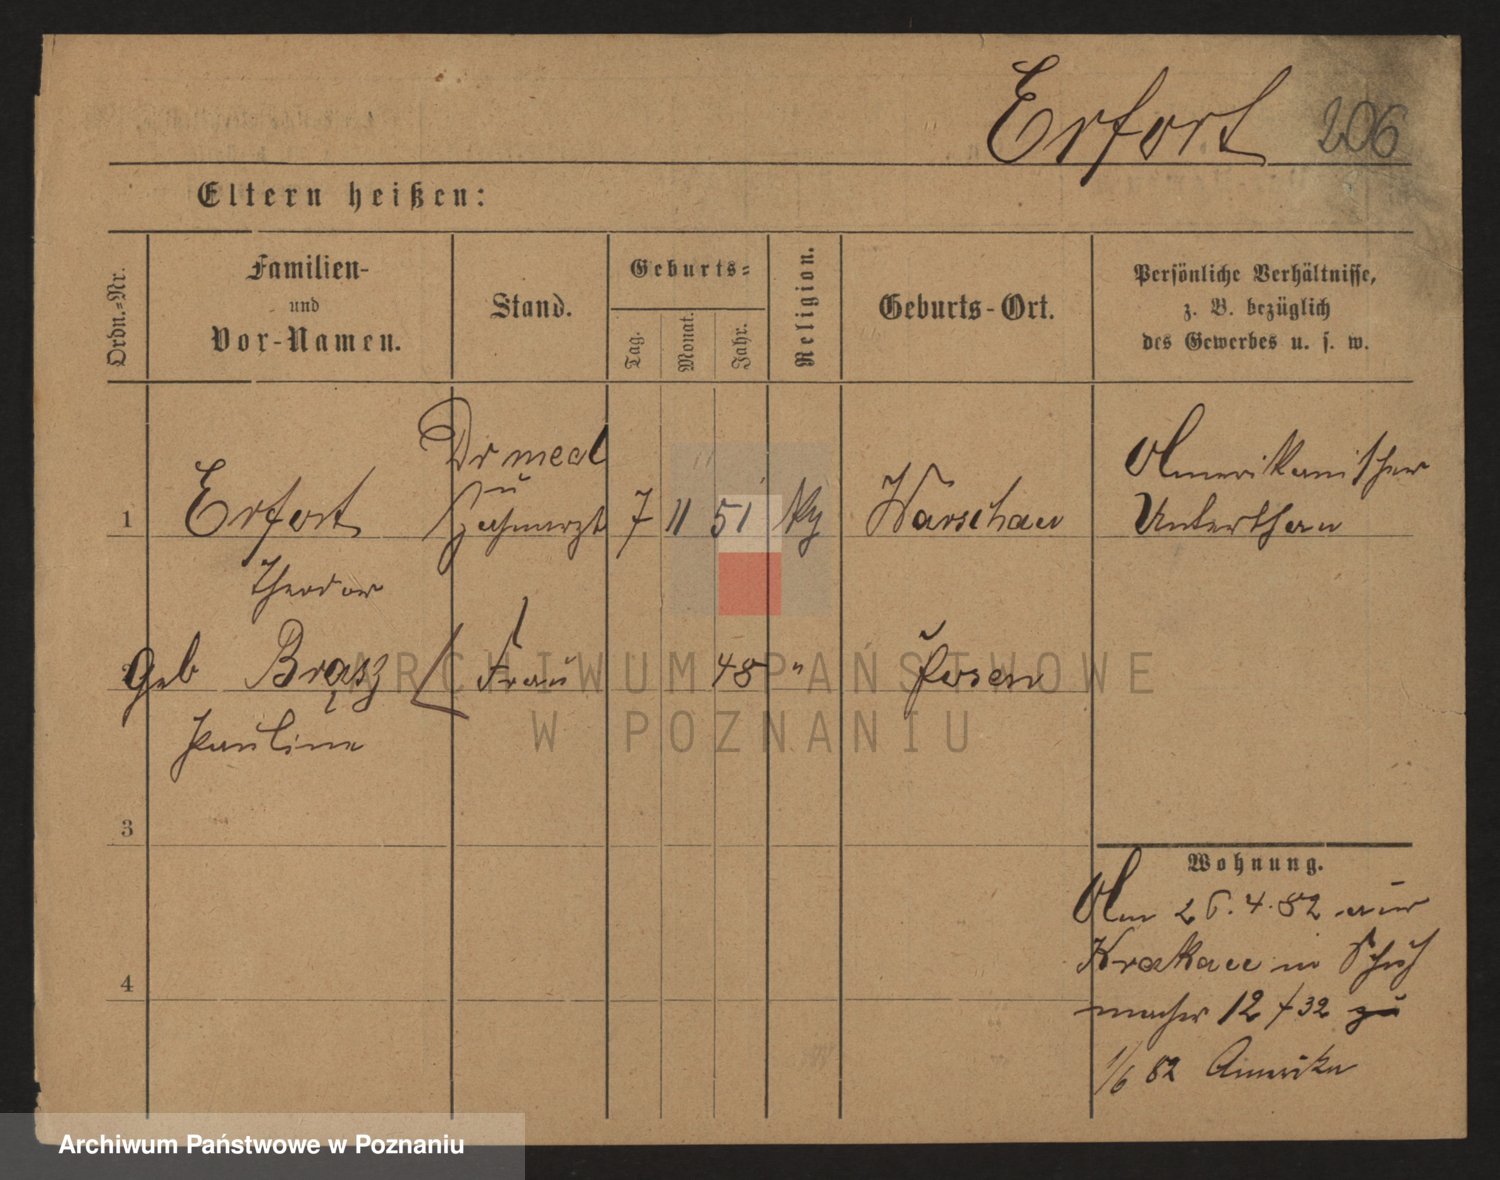 Erfort 206
Eltern heißen:
Ordn.-Nr.
Familien-
und
Vor-Namen.
Stand.
Geburts-
Tag.
Monat.
Jahr.
Religion.
Geburts-Ort.
Persönliche Verhältnisse,
z. B. bezüglich
des Gewerbes u. s. w.
Dr med
u
1 Erfort Zahnarzt 7 11 51 Warschau
Amerikanischer
Unterthan
Theodor
geb Brąsz Frau 48 " Posen
Pauline
3
Wohnung.
Am 26.4.82 aus
Krakau in Schuh
macher 12 / 32 zu
1/6 82 Amerika
4
ARCHIWUM PAŃSTWOWE
W POZNANIU
Archiwum Państwowe w Poznaniu